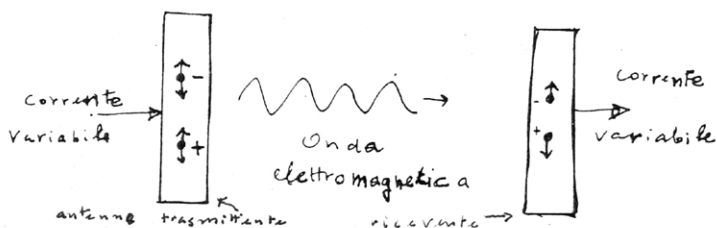 corrente
variabile
-
+
Onda
elettromagnetica
-
+
corrente
variabile
antenne trasmittente
ricevente